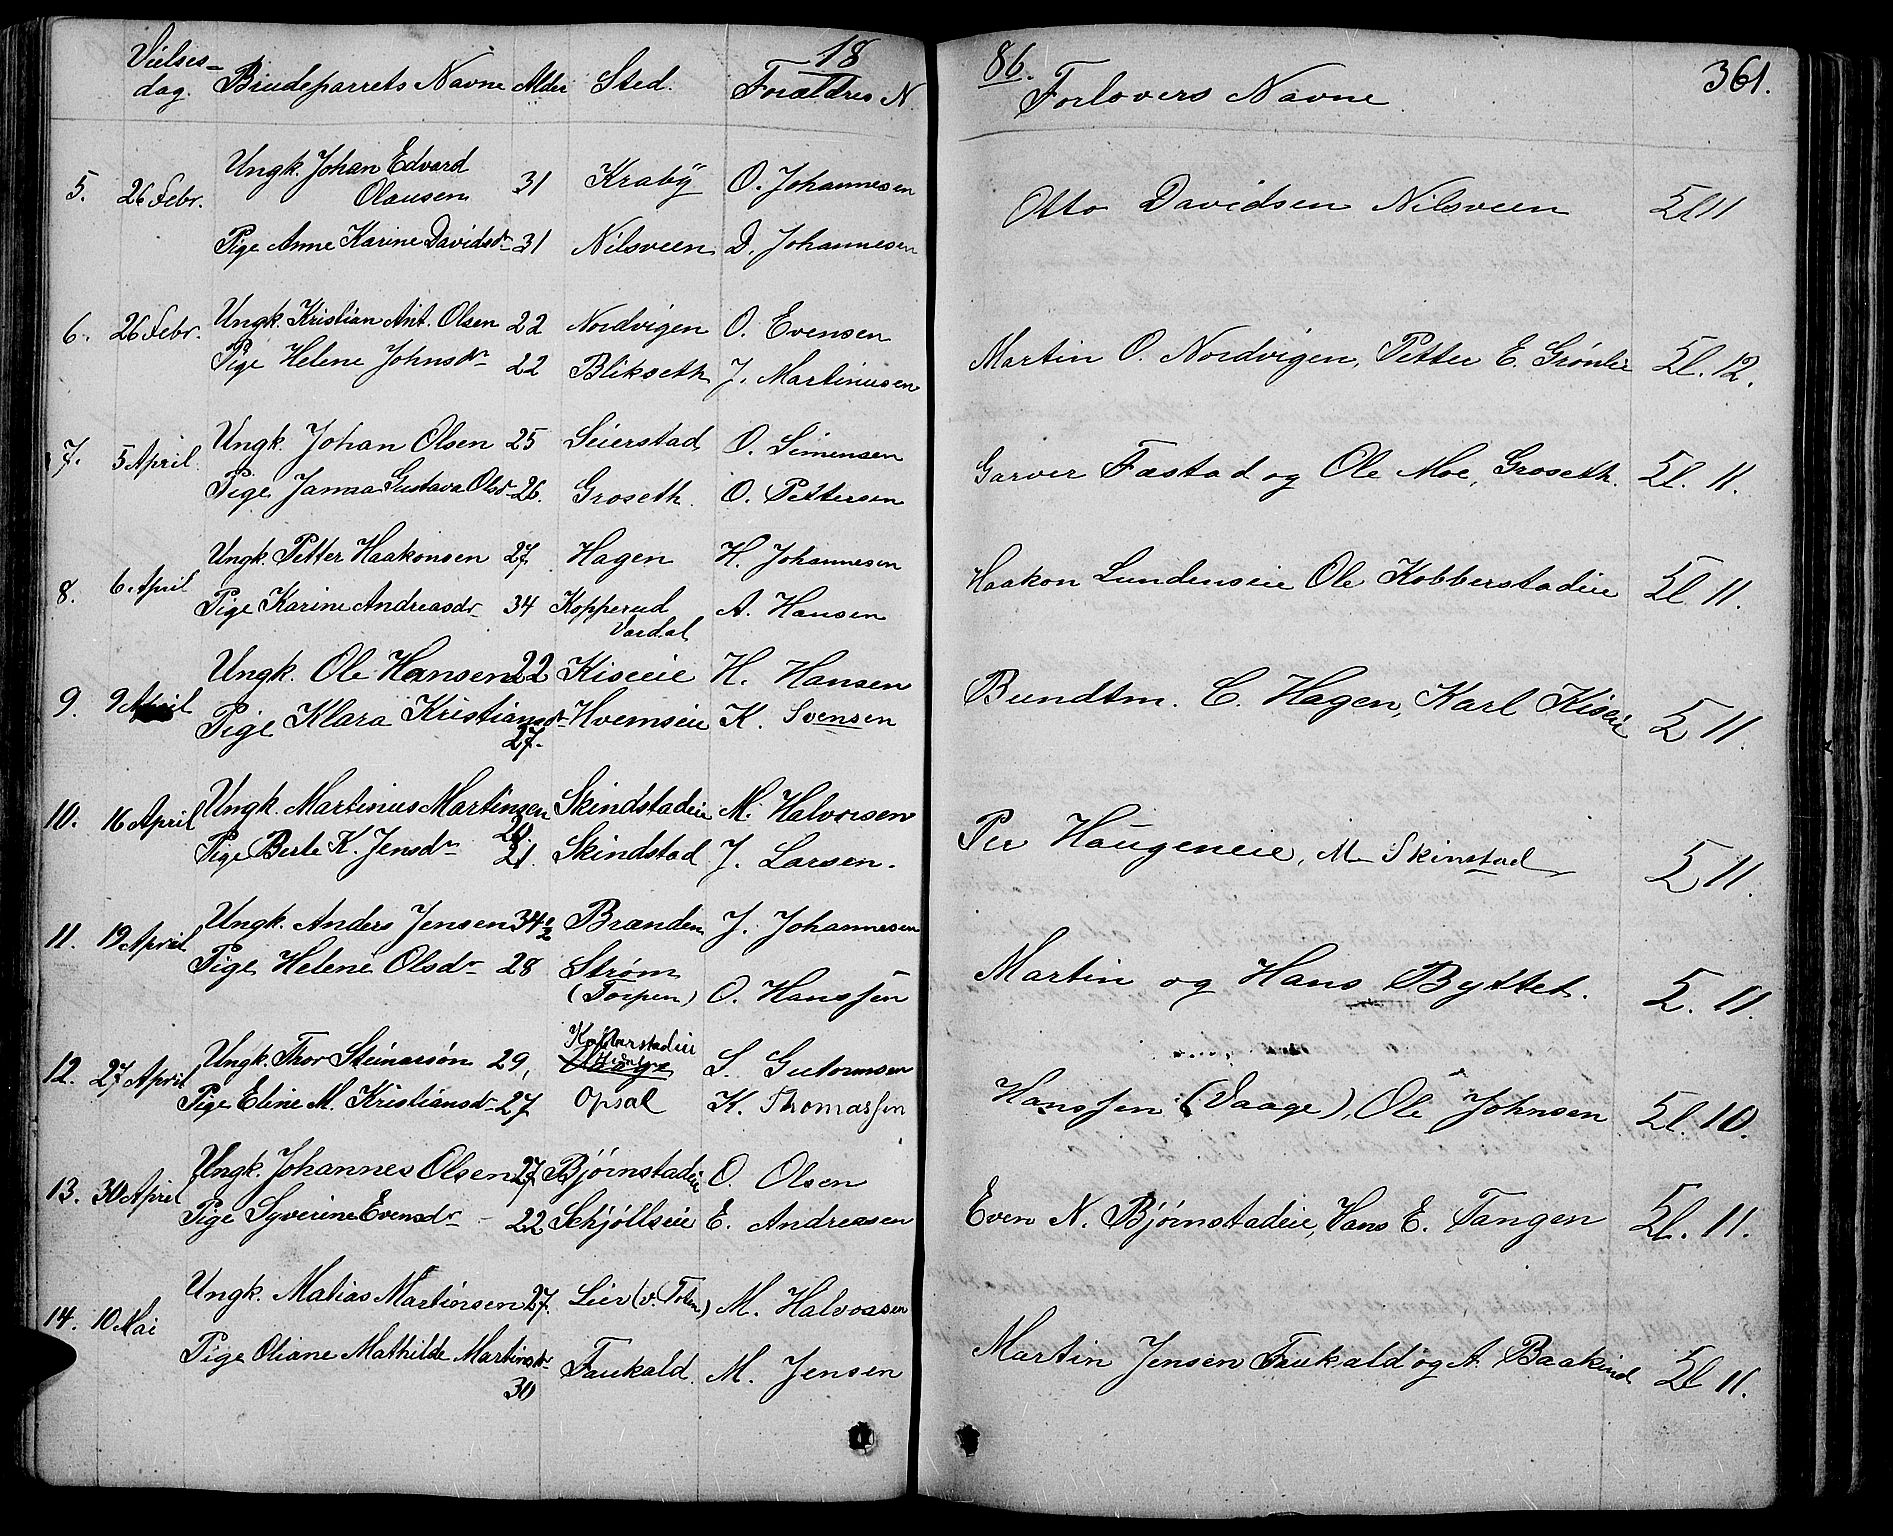 Vielses-
dag. Brudeparrets Navne Alder Sted. Forældres N.
18
86. Forlovers Navne 361.
Ungk. Johan Edvard
5. 26 Febr. Olausen 31 Kraby O. Johannesen
Pige Anne Karine Davidsdr 31 Nilsveen D. Johannesen
Otto Davidsen Nilsveen 5 Kl 11
Ungk. Kristian Ant. Olsen 22 Nordvigen O. Evensen
6. 26 Febr.
Pige Helene Johnsdr 22 Blikseth J. Martinusen
Martin O. Nordvigen, Petter E. Grønlie Kl. 12.
Ungk. Johan Olsen 25 Seierstad O. Simensen
7. 5 April.
Pige Janna Gustava Olsdr 26. Groseth. O. Pettersen
Garver Fæstad og Ole Moe, Groseth. Kl. 11.
Ungk. Petter Haakonsen 27 Hagen H. Johannesen
8. 6. April
Pige Karine Andreasdr 34 Kopperud A. Hansen
Vardal
Haakon Lundenseie Ole Kobberstadeie Kl. 11.
Ungk. Ole Hansen 22 Kiseeie H. Hansen
9. 9 April
Pige Klara Kristiansdr Hvemseie K. Svensen
27.
Bundtm. C. Hagen, Karl Kiseie 11.
Ungk. Martinius Martinsen Skindstadeie M. Halvorsen
10. 16 April
Pige Berte K. Jensdr 21. Skindstad J. Larsen.
Per Haugeneie, M Skinstad 11.
Ungk. Anders Jensen 34½ Branden J. Johannesen
11. 19 April
Pige Helene Olsdr 28 Strøm
(Torpen) O. Hanssen
Martin og Hans Byttet. 11.
Ungk. Thor Steinarsøn 29, S. Gutormsen
12. 27 April
Pige Eline M. Kristiansdr 27 Opsal K. Thomassen
Hanssen (Vaage), Ole Johnsen Kl. 10.
Ungk. Johannes Olsen 27 Bjørnstadeie O. Olsen
13. 30 April
Pige Syverine Evensdr 22 Schjøllseie E. Andreasen
Even N. Bjørnstadeie, Hans E. Tangen Kl. 11.
Ungk. Matias Martinsen 27. Lier (v. Toten) M. Halvorsen
14. 10 Mai
Pige Oliane Mathilde Martinsdr Faukald. M. Jensen
30
Martin Jensen Faukald og A. Baakind Kl 11.